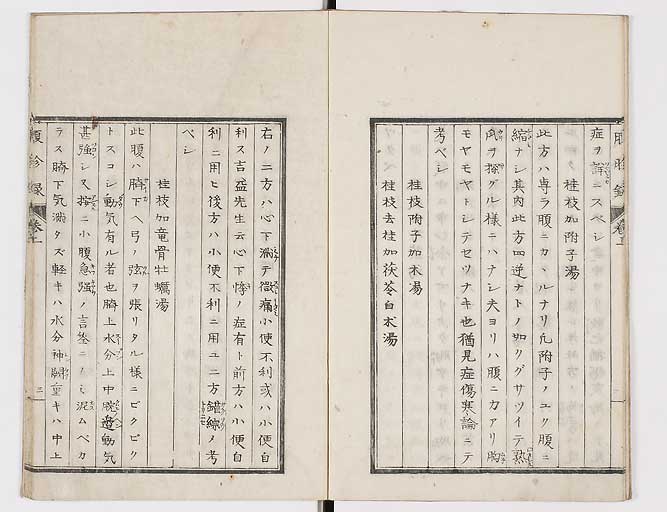 症ヲ詳ニスベシ
桂枝加附子湯
此方ハ専ラ腹ニカヽルナリ凡附子ノユク腹ニ
縮ナシ其内此方四逆ナトノ如リグサツイテ熟
瓜ヲ探グル様ニハナシ夫ヨリハ腹ニ力アリ胸
モヤモヤトシテセツナキ也猶見症傷寒論ニテ
考ベシ
桂枝附子加朮湯
桂枝去桂加茯苓白朮湯
腹診録 巻上
右ノ二方ハ心下満テ微痛小便不利或ハ小便自
利ス吉益先生云心下悸ノ症有ト前方ハ小便自
利ニ用ヒ後方ハ小便不利ニ用ユ二方錯綜ノ考
ベシ
桂枝加竜骨牡蠣湯
此腹ハ臍下ヘ弓ノ弦ヲ張リタル様ニビクビク
トスコシ動気有ル者也臍上水分上中脘邉動気
甚強シ又撩ニ小腹急強ノ言葉ニ泥ムベカ
ラス臍下気満タズ軽キハ水分神闕重キハ中上
腹診録 巻上 三